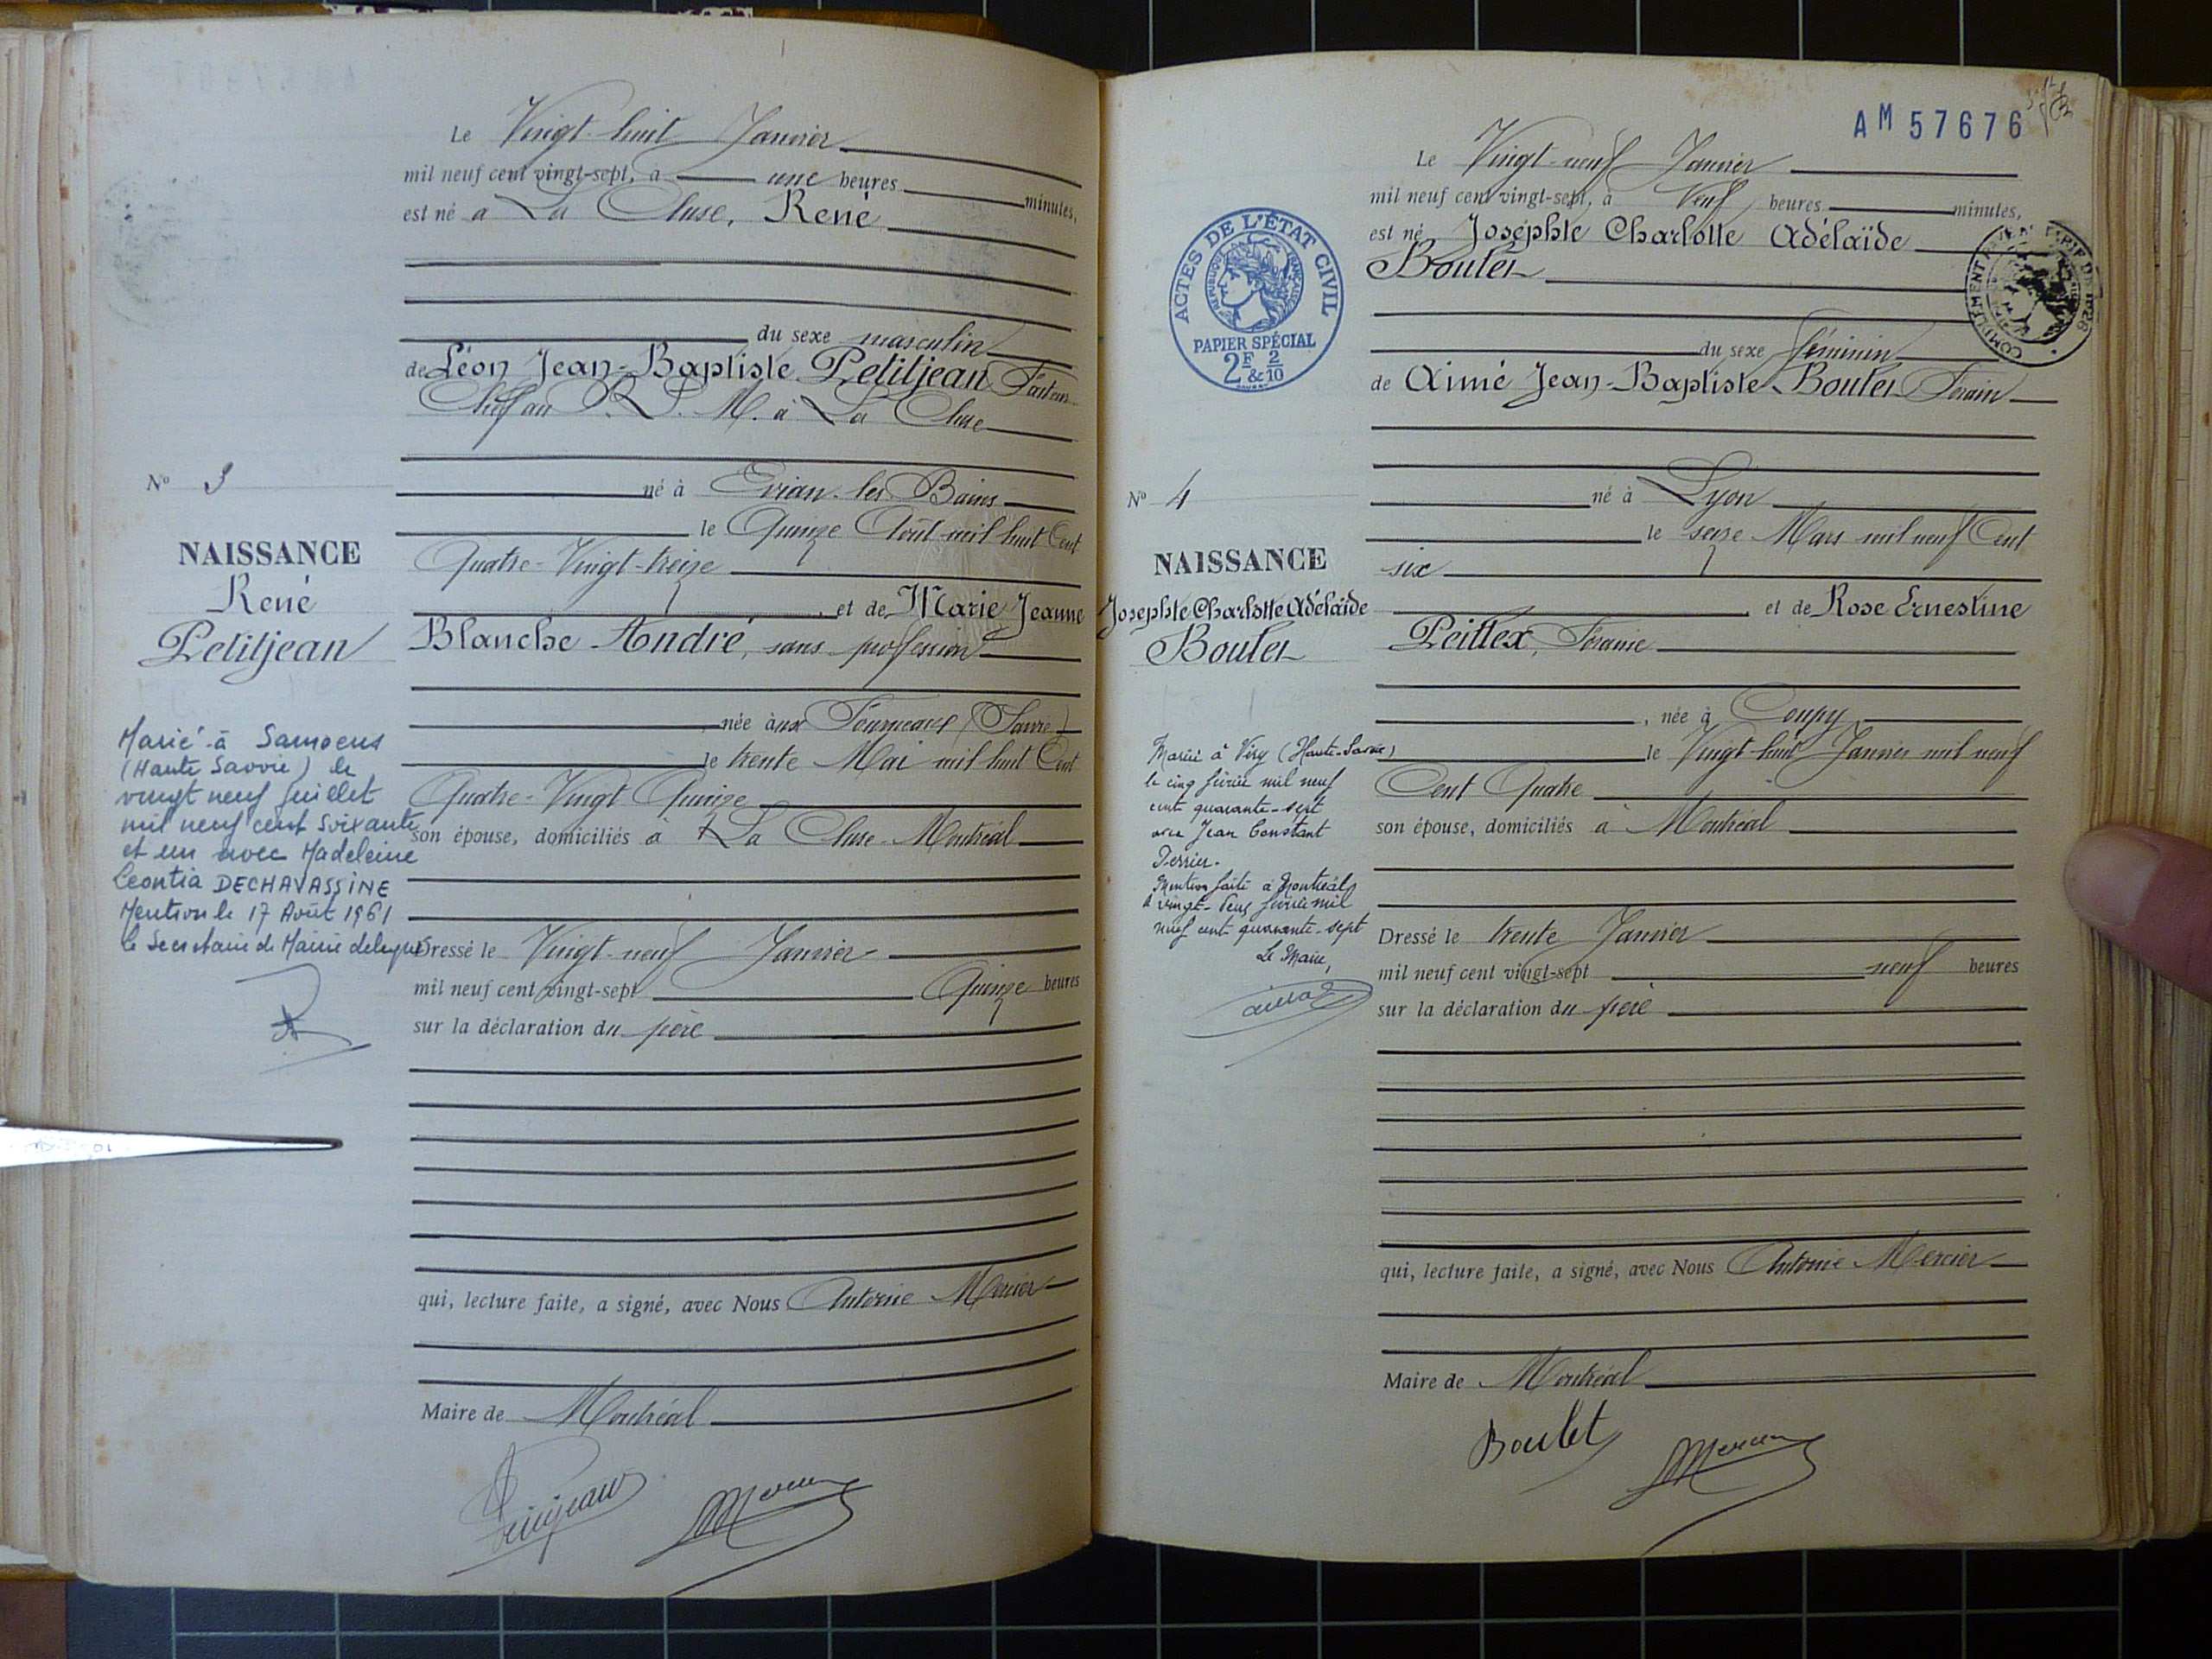 Le Vingt-huit Janvier
mil neuf cent vingt-sept, à une heures minutes,
est né à La Cluse, René
du sexe masculin
de Léon Jean-Baptiste Petitjean Facteur
Chef au P. L. M. à La Cluse
né à Evian-les-Bains
le Quinze Août mil huit Cent
Quatre-Vingt-treize
et de Marie Jeanne
Blanche André, sans profession
née aux Fourneaux (Savoie)
le trente Mai mil huit Cent
Quatre-Vingt Quinze
son épouse, domiciliés à La Cluse-Montréal
Dressé le Vingt-neuf Janvier
mil neuf cent vingt-sept Quinze heures
sur la déclaration du père
qui, lecture faite, a signé, avec Nous Antoine Mercier
Maire de Montréal
Petitjean Mercier
No 3
NAISSANCE
René
Petitjean
Marié à Samoens
(Haute Savoie) le
vingt neuf Juillet
mil neuf cent soixante
et un avec Madeleine
Leontia DECHAVASSINE
Mention le 17 Août 1961
le Secretaire de Mairie delegué
AM 57676
Le Vingt-neuf Janvier
mil neuf cent vingt-sept, à Neuf heures minutes,
est né Josephte Charlotte Adélaïde
Boulet
du sexe féminin
de Aimé Jean-Baptiste Boulet Forain
né à Lyon
le seize Mars mil neuf Cent
six
et de Rose Ernestine
Peillex, Foraine
, née à Coupy
le Vingt-huit Janvier mil neuf
Cent Quatre
son épouse, domiciliés à Montréal
Dressé le trente Janvier
mil neuf cent vingt-sept neuf heures
sur la déclaration du père
qui, lecture faite, a signé, avec Nous Antoine Mercier
Maire de Montréal
Boulet Mercier
ACTES DE L'ÉTAT CIVIL
RÉPUBLIQUE FRANÇAISE
PAPIER SPÉCIAL
2F & 2/10
No 4
NAISSANCE
Josephte Charlotte Adélaïde
Boulet
Mariée à Viry (Haute-Savoie)
le cinq février mil neuf
cent quarante-sept
avec Jean Constant
Perrier.
Mention faite à Montréal
le vingt-deux février mil
neuf cent quarante-sept
Le Maire,